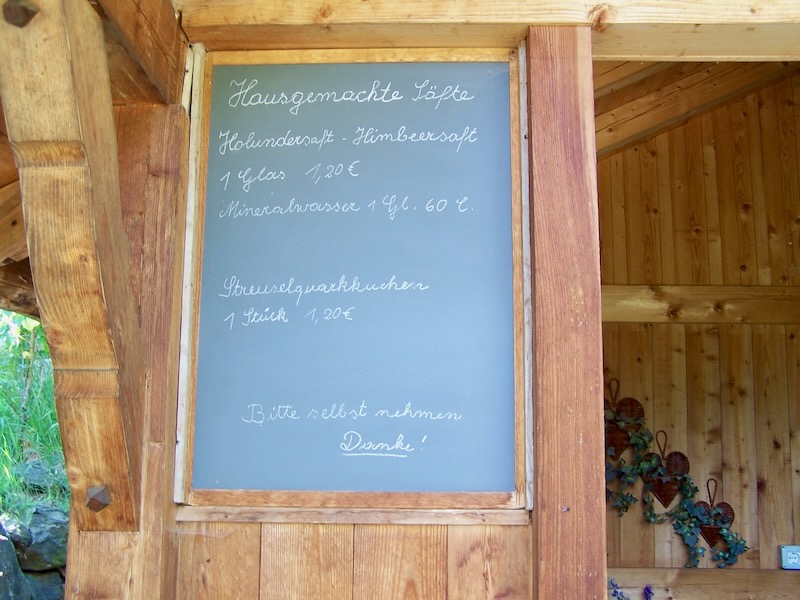 Hausgemachte Säfte
Holundersaft - Himbeersaft
1 Glas 1,20€
Mineralwasser 1 Gl. 60 C.
Streuselquarkkuchen
1 Stück 1,20€
Bitte selbst nehmen
Danke!